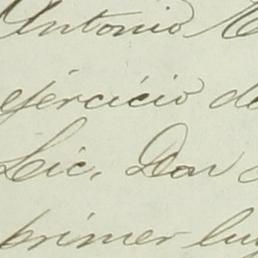 Antonio
ejercicio de
Lic. Don
primer lug